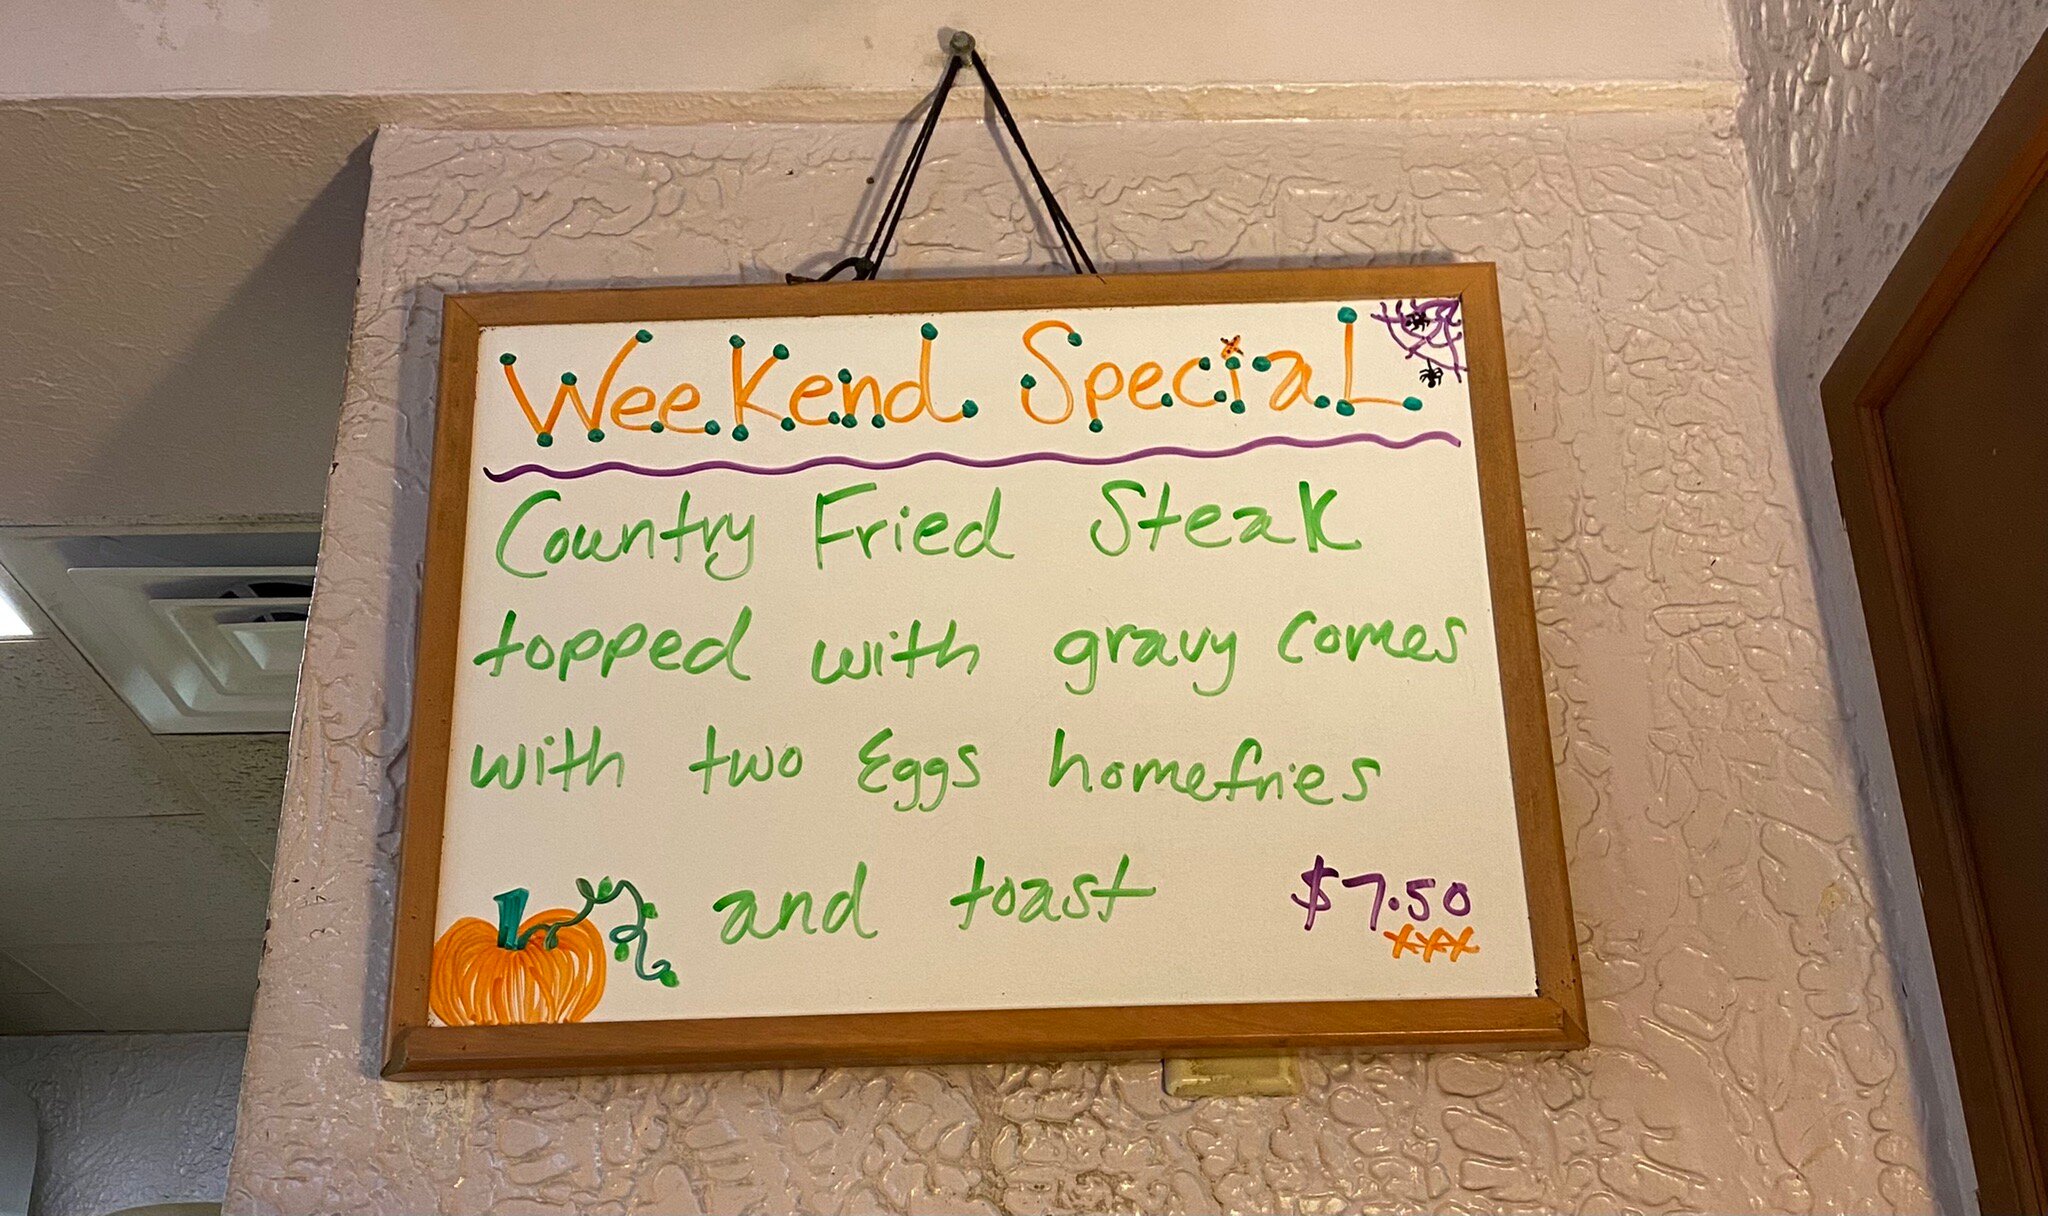 WeeKend Special
Country Fried Steak
topped with gravy comes
with two Eggs homefries
and toast $7.50
xxx